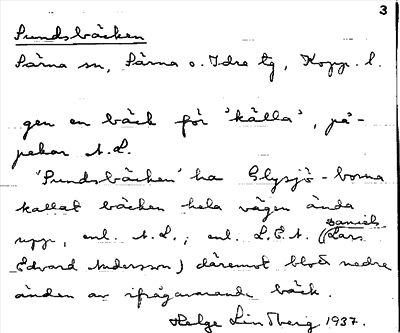 3
Sundsbäcken
Särna sn, Särna o. Idre tg, Kopp. l.
gen en bäck för 'källa', på-
pekar A.L.
'Sundsbäcken' ha Glysjö-borna
kallat bäcken hela vägen ända
upp, enl. A.L.; enl. L.E.A. (Daniels Lars
Edvard Andersson) däremot blott nedre
änden av ifrågavarande bäck.
Helge Lindberg 1937.